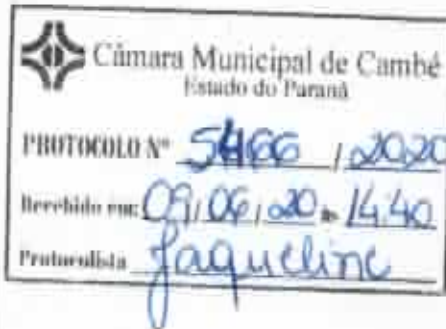 Câmara Municipal de Cambé
Estado do Paraná
PROTOCOLO Nº 5466 / 2020
Recebido em: 09 / 06 / 20 às 14:40
Protocolista Jaqueline